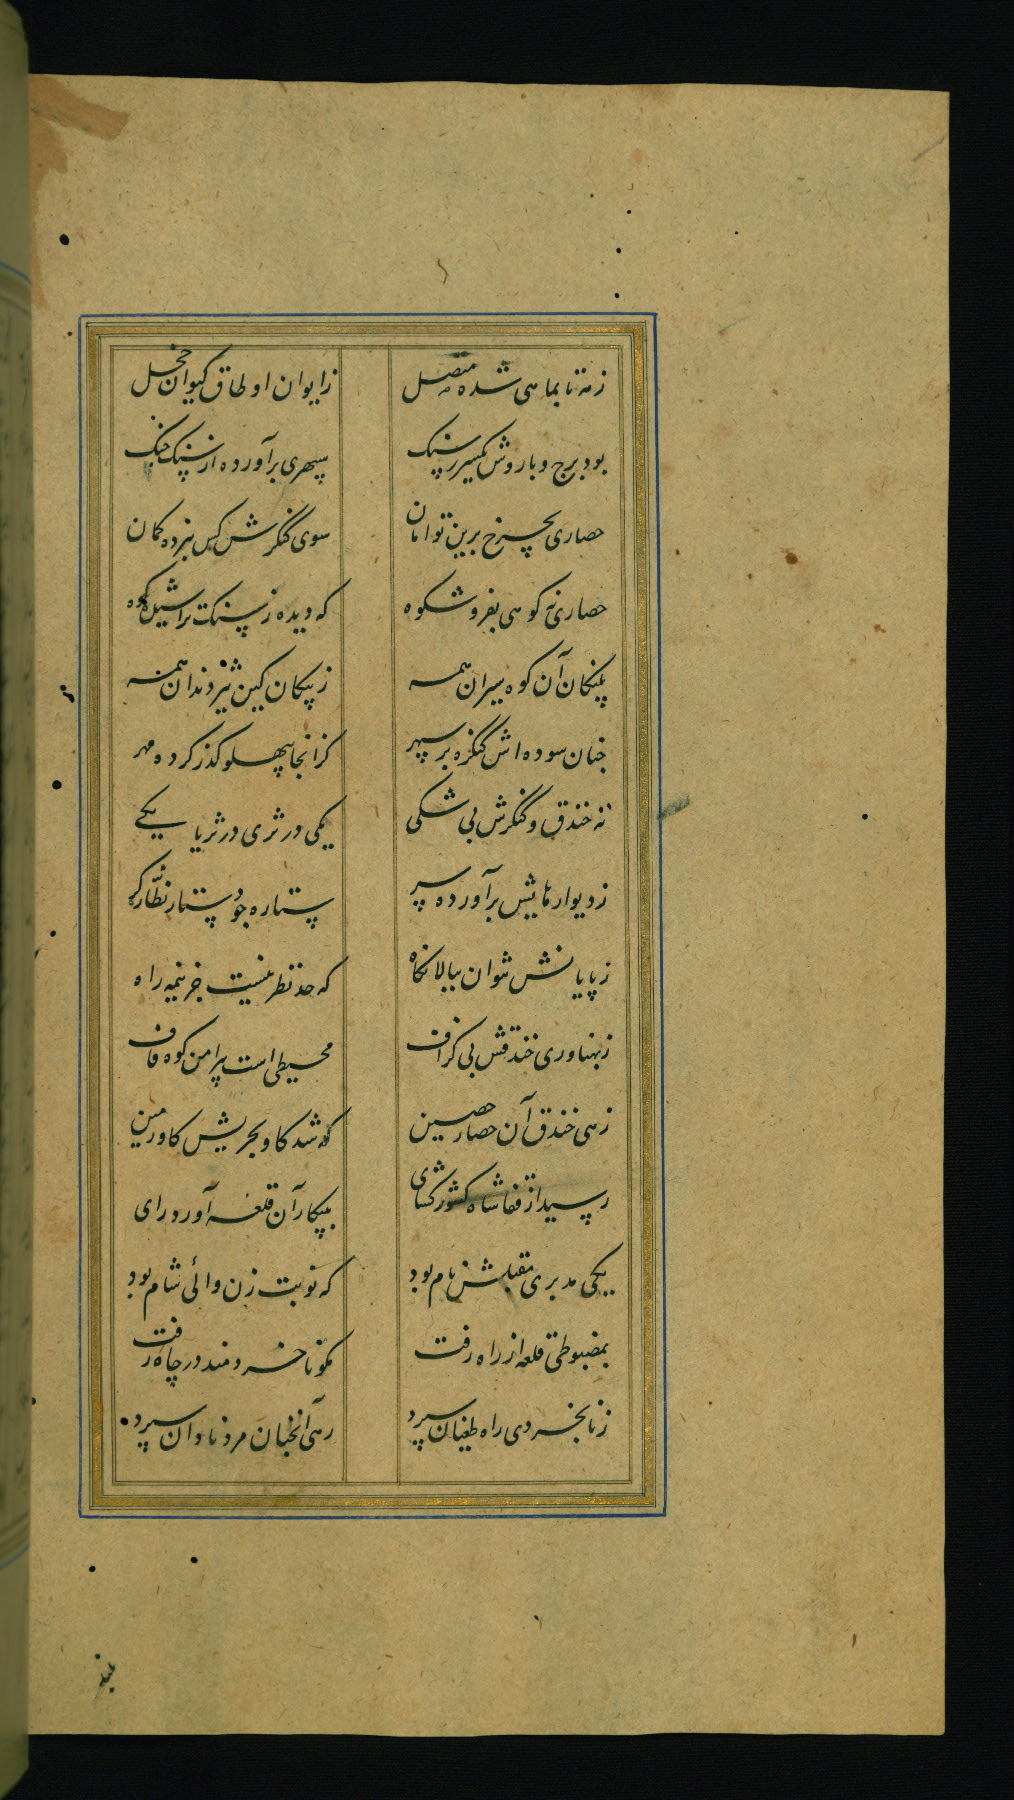 زمه تا بماهی شده متصل
زایوان او طاق کیوان خجل
بود برج و باروش یکسر ز سنک
سپهری برآورده از سنک جنک
حصاری بچرخ برین توامان
سوی کنکرش کس نبرده کمان
حصاری نه کوهی بفر و شکوه
که دیده ز سنکت تراشیده کوه
پلنکان آن کوه سیران همه
ز پیکان کین تیز دندان همه
چنان سوده اش کنکره بر سپهر
کز انجا بپهلو کذر کرده مهر
ته خندق و کنکرش بی شکی
یکی در ثری در ثریا یکی
ز دیوارهایش برآورده سر
ستاره جو ستار نظاره کر
ز پایانش نتوان ببالا نکاه
که حد نظر نیست جز نیمه راه
ز پهناوری خندقش بی کزاف
محیطی است پیرامن کوه قاف
زهی خندق آن حصار حصین
که شد کاو بحریش کاو زمین
رسید از قفا شاه کشور کشای
بپیکار آن قلعه آورد رای
یکی مدبری مقبلش نام بود
که نوبت زن وائی شام بود
بمضبوطی قلعه از راه رفت
نکو ناخردمند در چاه رفت
ز نابخردی راه طغیان سپرد
رهی آنچنان مرد نادان سپرد